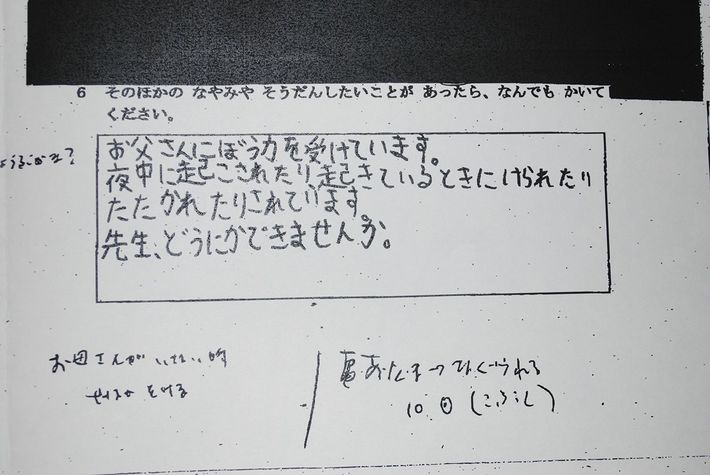 6 そのほかの なやみや そうだんしたいことが あったら、なんでも かいて
ください。
お父さんにぼう力を受けています。
夜中に起こされたり起きているときにけられたり
たたかれたりされています。
先生、どうにかできませんか。
お母さんがいない時
あたま→なぐられる
10回(こぶし)